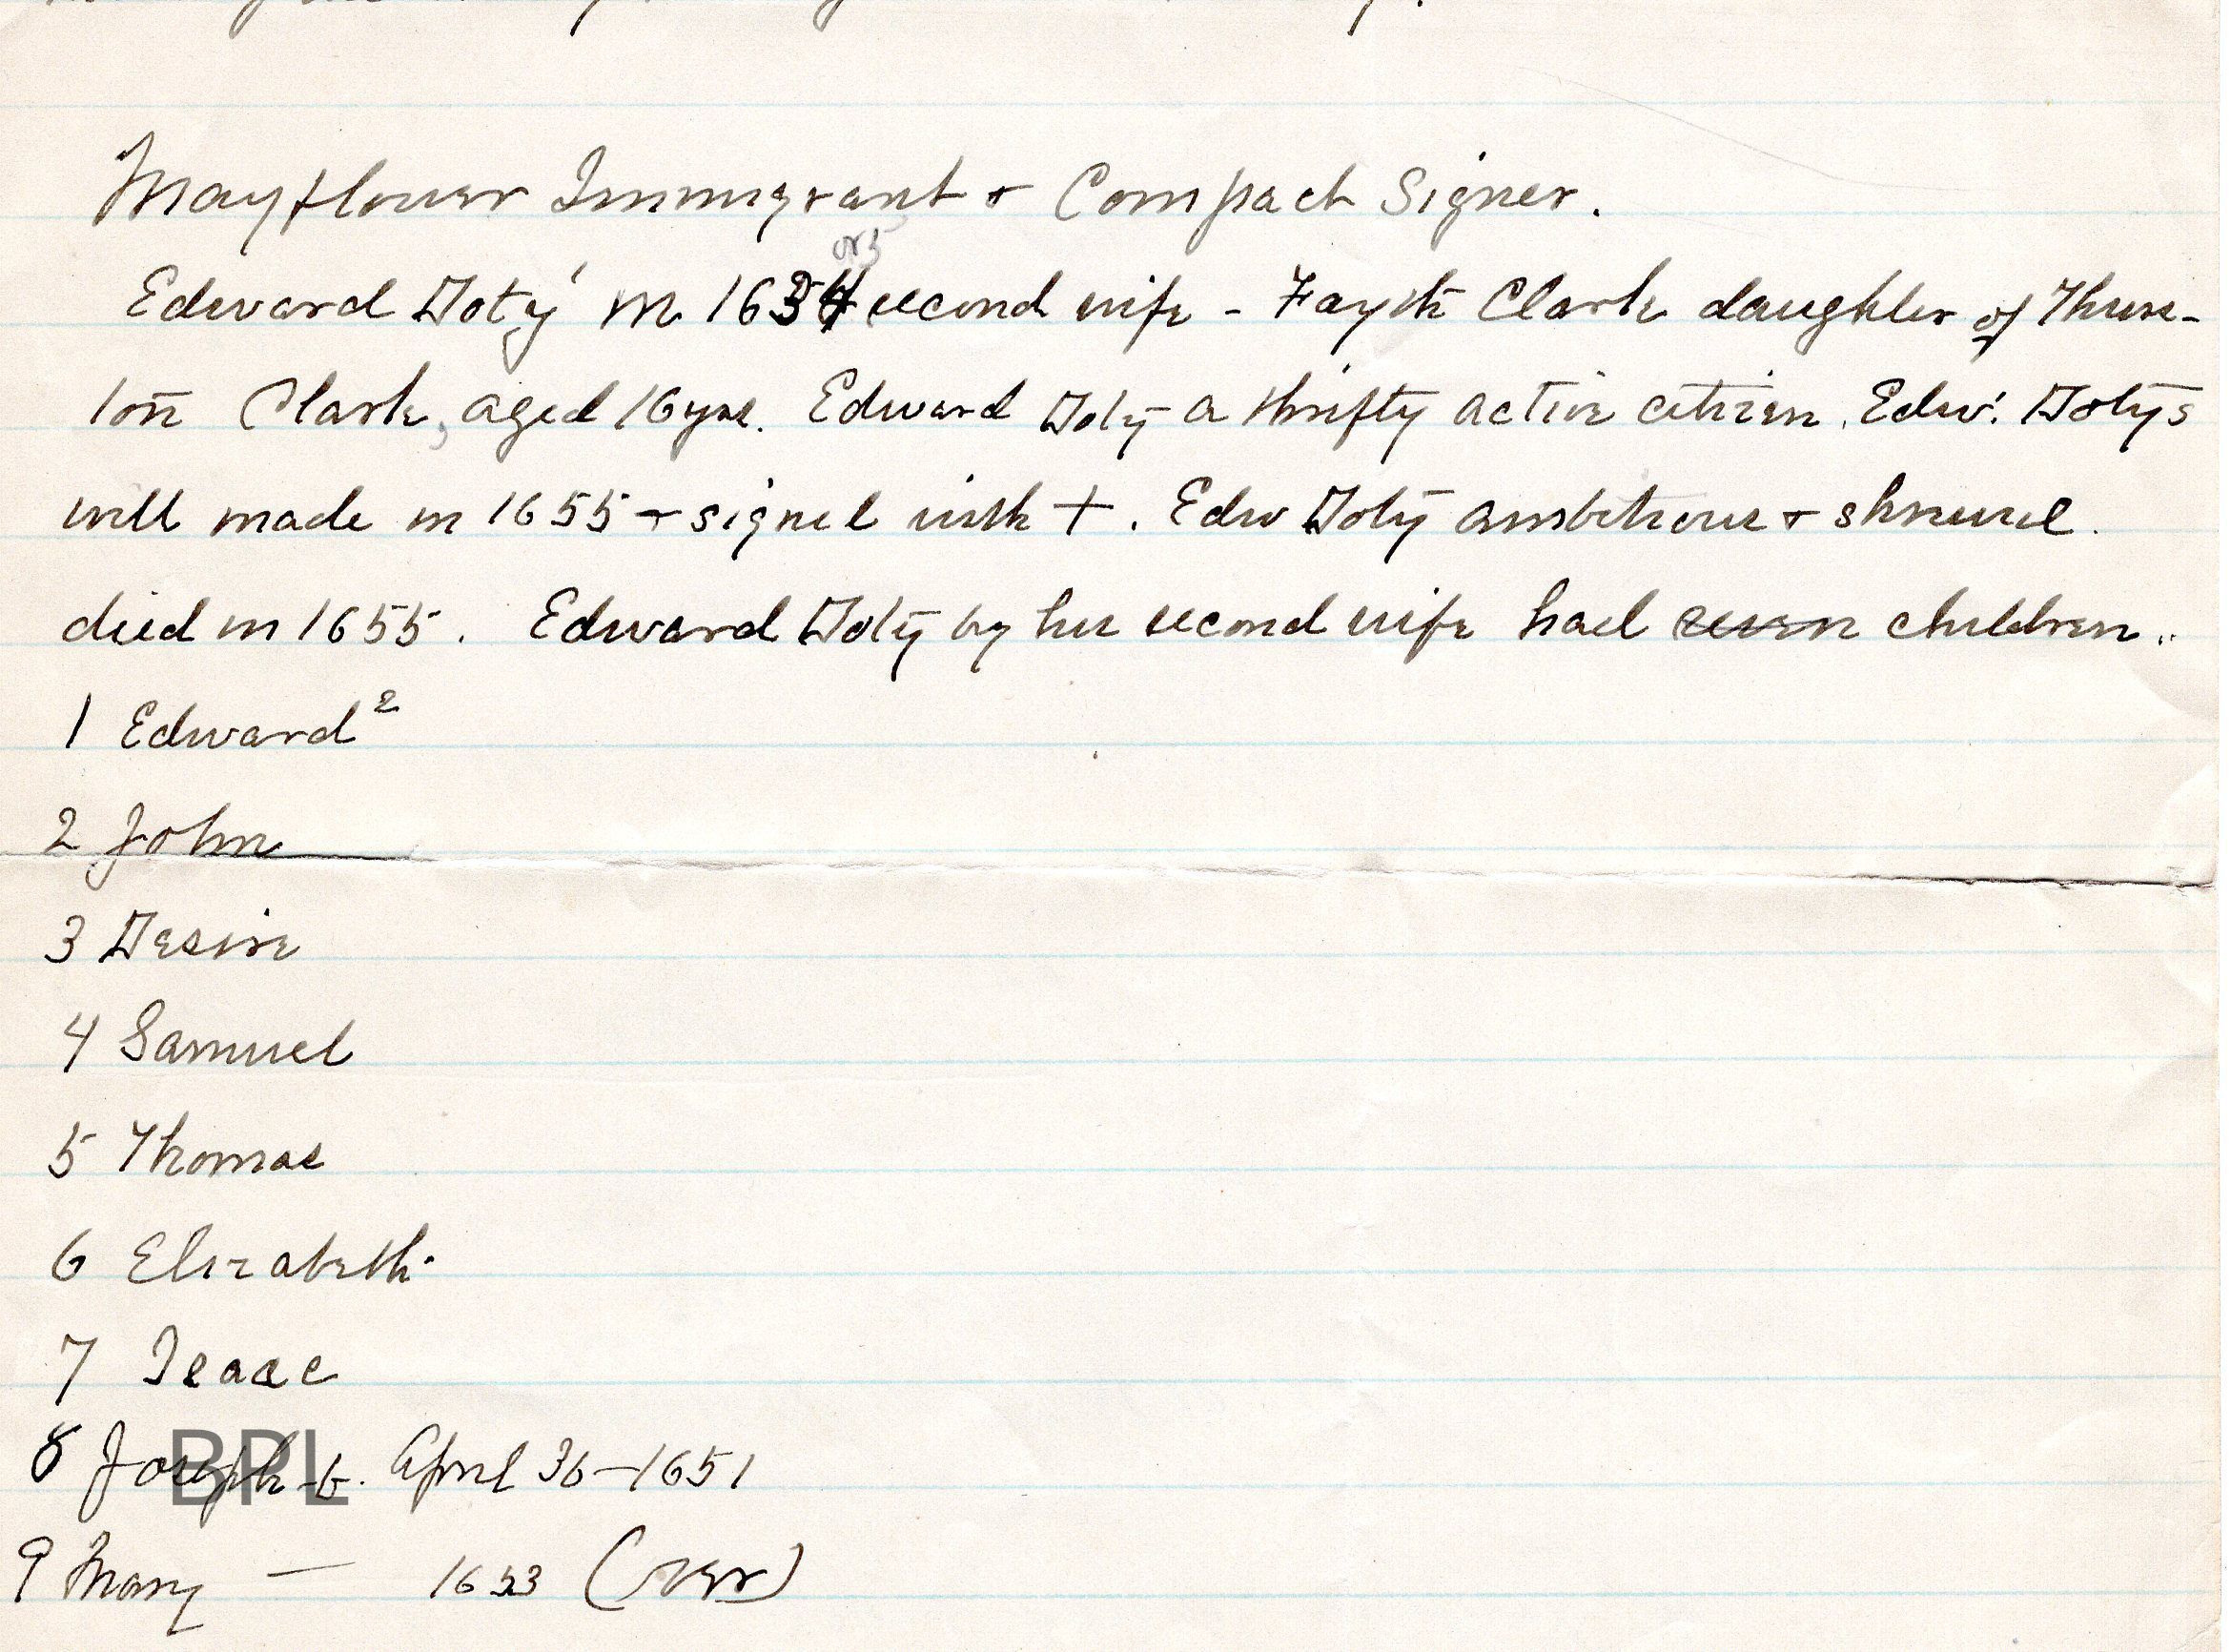 Mayflower Immigrant & Compact Signer.
or 5
Edward Doty' m 1634 second wife - Fayth Clark daughter of Thurs-
ton Clark, aged 16 yrs. Edward Doty a thrifty active citizen. Edw. Dotys
will made in 1655 & signed with +. Edw Doty ambitious & shrewd.
died in 1655. Edward Doty by his second wife had seven children..
1 Edward²
2 John
3 Desire
4 Samuel
5 Thomas
6 Elizabeth
7 Isaac
8 Joseph - b. April 30-1651
9 Mary — 1653 (over)
BPL